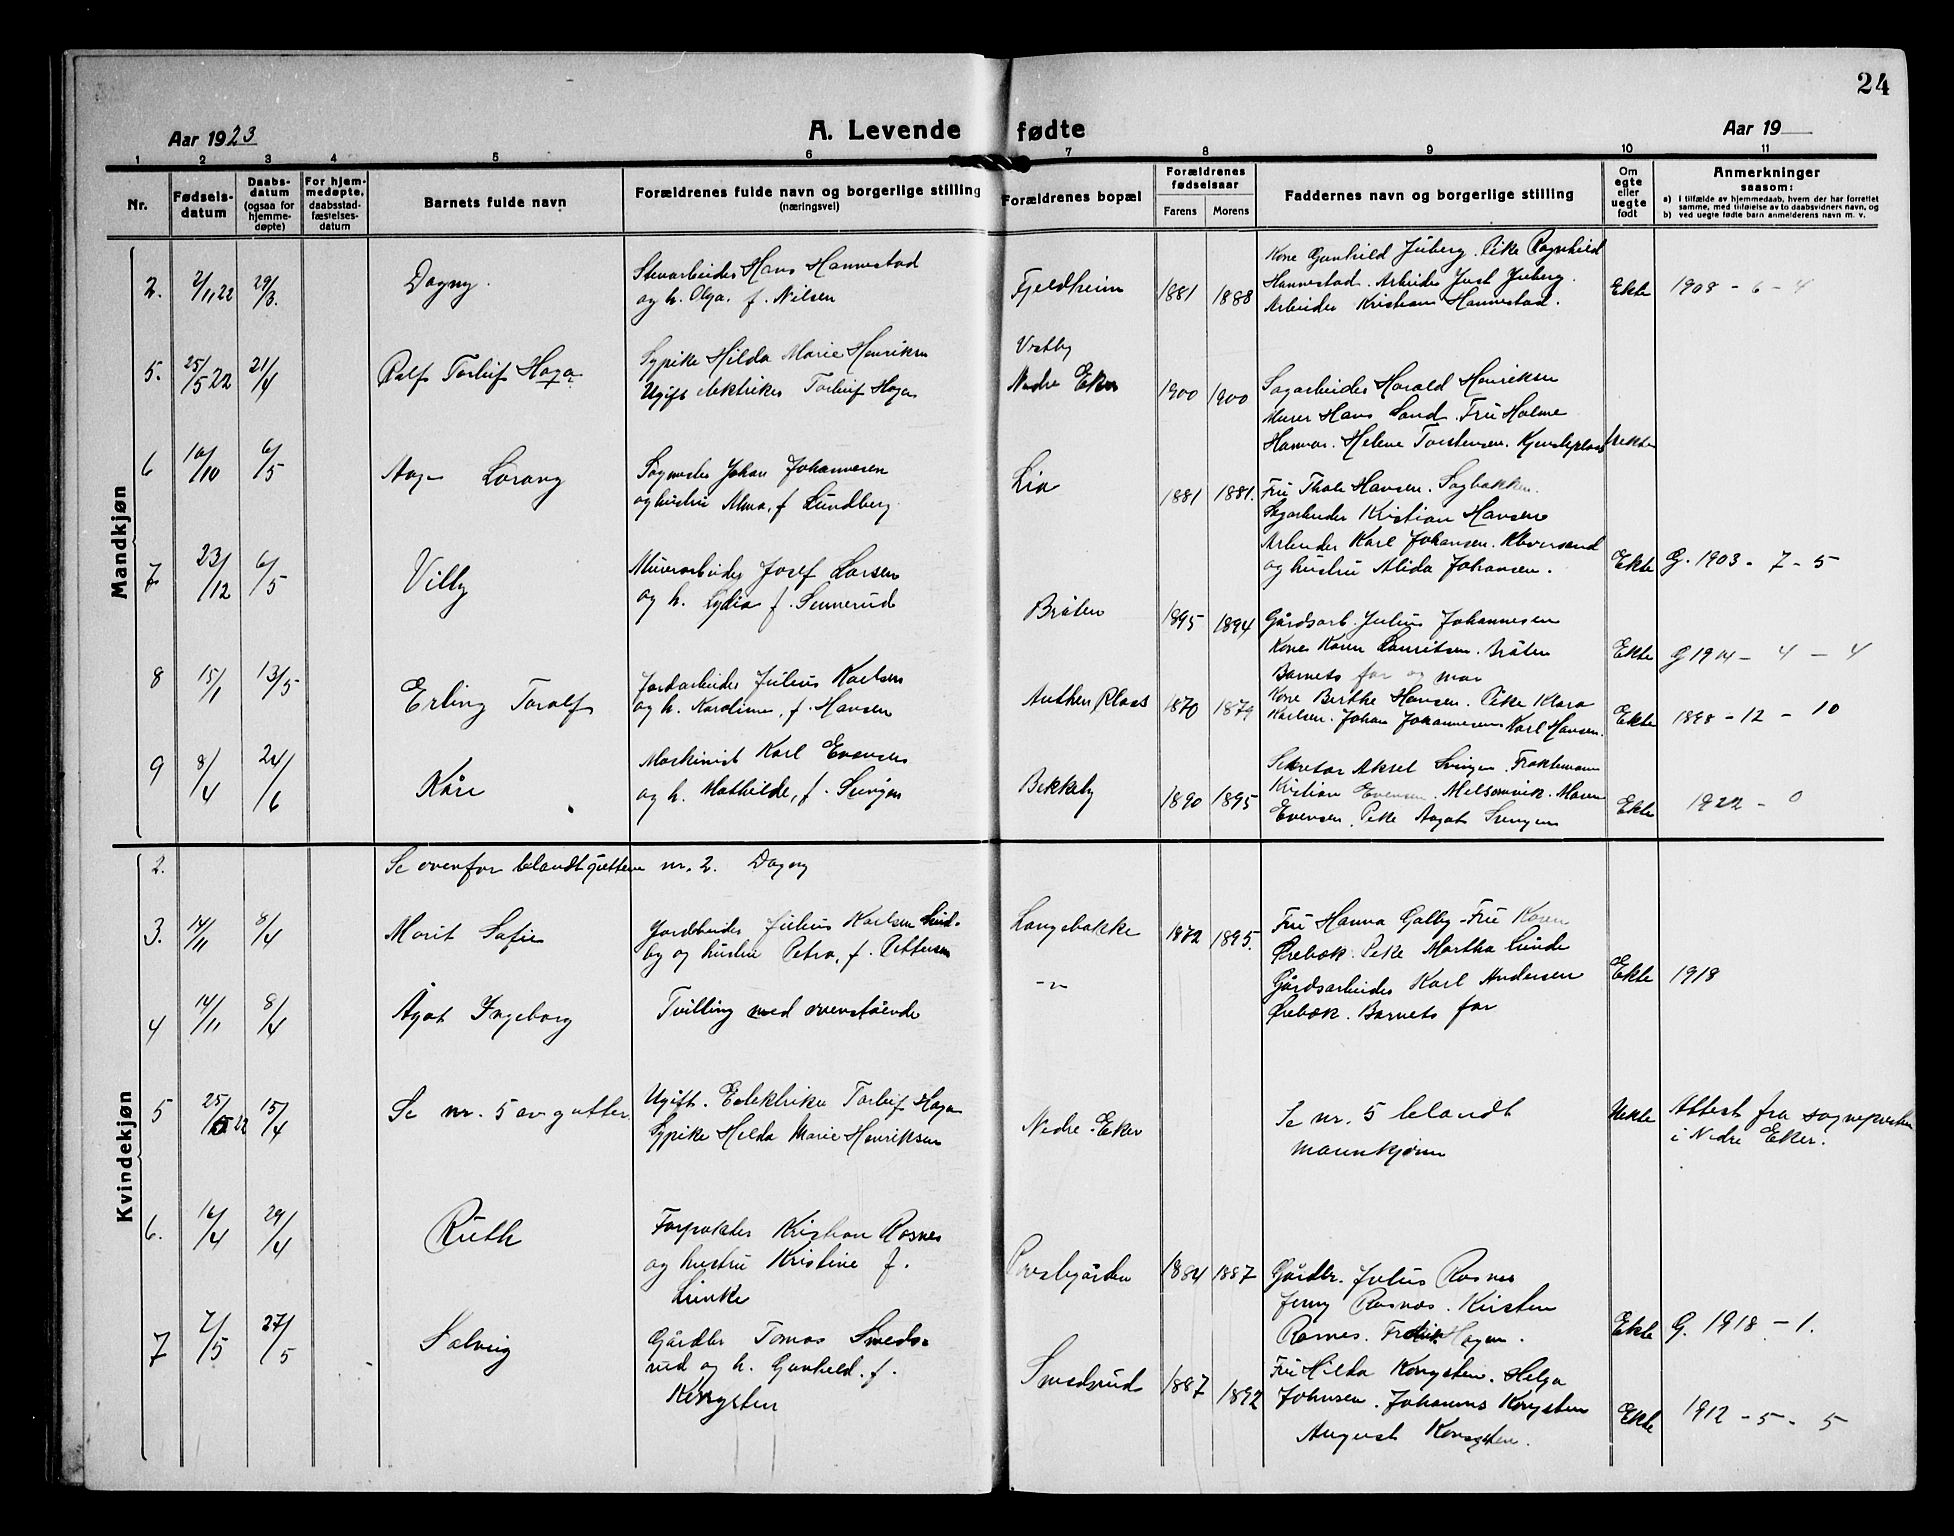 24
Aar 1923
A. Levende fødte
Aar 19
1 2 3 4 5 6 7 8 9 10 11
Nr.
Fødsels-
datum
Daabs-
datum
(ogsaa for
hjemme-
døpte)
For hjem-
medøpte,
daabsstad-
fæstelses-
datum
Barnets fulde navn
Forældrenes fulde navn og borgerlige stilling
(næringsvei)
Forældrenes bopæl
Forældrenes
fødselsaar
Farens Morens
Faddernes navn og borgerlige stilling
Om
egte
eller
uegte
født
Anmerkninger
saasom:
a) I tilfælde av hjemmedaab, hvem der har forrettet
samme, med tilføielse av to daabsvidners navn, og
b) ved uegte fødte barn anmelderens navn m. v.
Mandkjøn
2. 2/11 22 29/3. Dagny.
Stenarbeider Hans Hannestad
og h. Olga. f. Nilsen
Fjeldheim 1881 1888
Kone Gunhild Juberg. Pike Ragnhild
Hannestad. Arbeider Just Juberg.
Arbeider Kristian Hannestad.
Ekte 1908 - 6 - 4
5. 25/5 22 21/4 Ralf Torleif Haga
Sypike Hilda Marie Henriksen
Ugift elektriker Torleif Haga
Vestby
Nedre Eker 1900 1900
Sagarbeider Harald Henriksen
Murer Hans Sand. Fru Halme
Hannes. Helene Torstensen.
Uekte
6 10/10 6/5 Aage Lorang
Sagmester Johan Johannesen
og hustru Alma, f. Lundberg.
Lia 1881 1881.
Fru Thale Hansen. Sagbakken.
Sagarbeider Kristian Hansen
Arbeider Karl Johansen.
og hustru Alida Johansen.
Ekte G. 1903 - 7 - 5
7 23/12 6/5 Villy
Murerarbeider Josef Larsen
og h. Lydia f. Sennerud
Bråten 1895 1894
Gårdsarb. Julius Johannesen
Kone Karen Lauritsen. Bråten
Barnets far og mor
Ekte G 1904 - 4 - 4
8 15/1 13/5 Erling Toralf
Jordarbeider Julius Karlsen
og h. Karoline, f. Hansen
1870 1879
Kone Berthe Hansen. Pike Klara
Karlsen. Johan Johannesen Karl Hansen.
Ekte 1898 - 12 - 10
9 8/4 24/6 Kåre
Maskinist Karl Evensen
og h. Mathilde, f. Svingen
Bekkeby 1890 1895
Sekretær Aksel Svingen.
Kristian Evensen. Melsomvik. Maren
Evensen. Pike Aagot Svingen
Ekte 1922 - 0
Kvindekjøn
2. Se ovenfor blandt guttene nr. 2. Dagny
3. 14/11 8/4 Marit Sofie
Jordarbeider Julius Karlsen Lind-
by og hustru Petra, f. Pettersen
Langebakke 1872 1895.
Fru Hanna Galby. Fru Karen
Ørebæk. Pike Martha Lunde
Gårdsarbeider Karl Andersen
Ørebæk. Barnets far
Ekte 1918
4 14/11 8/4 Ågot Ingeborg
Tvilling med ovenstående
-"-
5 25/5 22 15/4 Se nr. 5 av gutter.
Ugift. Eelektriker Torleif Haga
Sypike Hilda Marie Henriksen
Nedre-Eker
Se nr. 5 blandt
mannkjønn
Uekte Attest fra sognepresten
i Nedre Eker.
6. 16/4 29/4 Ruth
Forpakter Kristian Rosnes
og hustru Kristine f.
Linke
Prestegården 1884 1887
Gårdbr. Julius Rosnes
Jenny Rosnes. Kirsten
Rosnes. Fredrik Hagen.
Ekte G. 1918 - 1.
7 2/5 27/5 Solveig
Gårdbr Tomas Smeds-
rud og h. Gunhild. f.
Kongsten
Smedsrud 1887 1892
Fru Hilda Kongsten. Helga
Johnsen. Johannes Kongsten
August Kongsten.
Ekte 1912 - 5 - 5